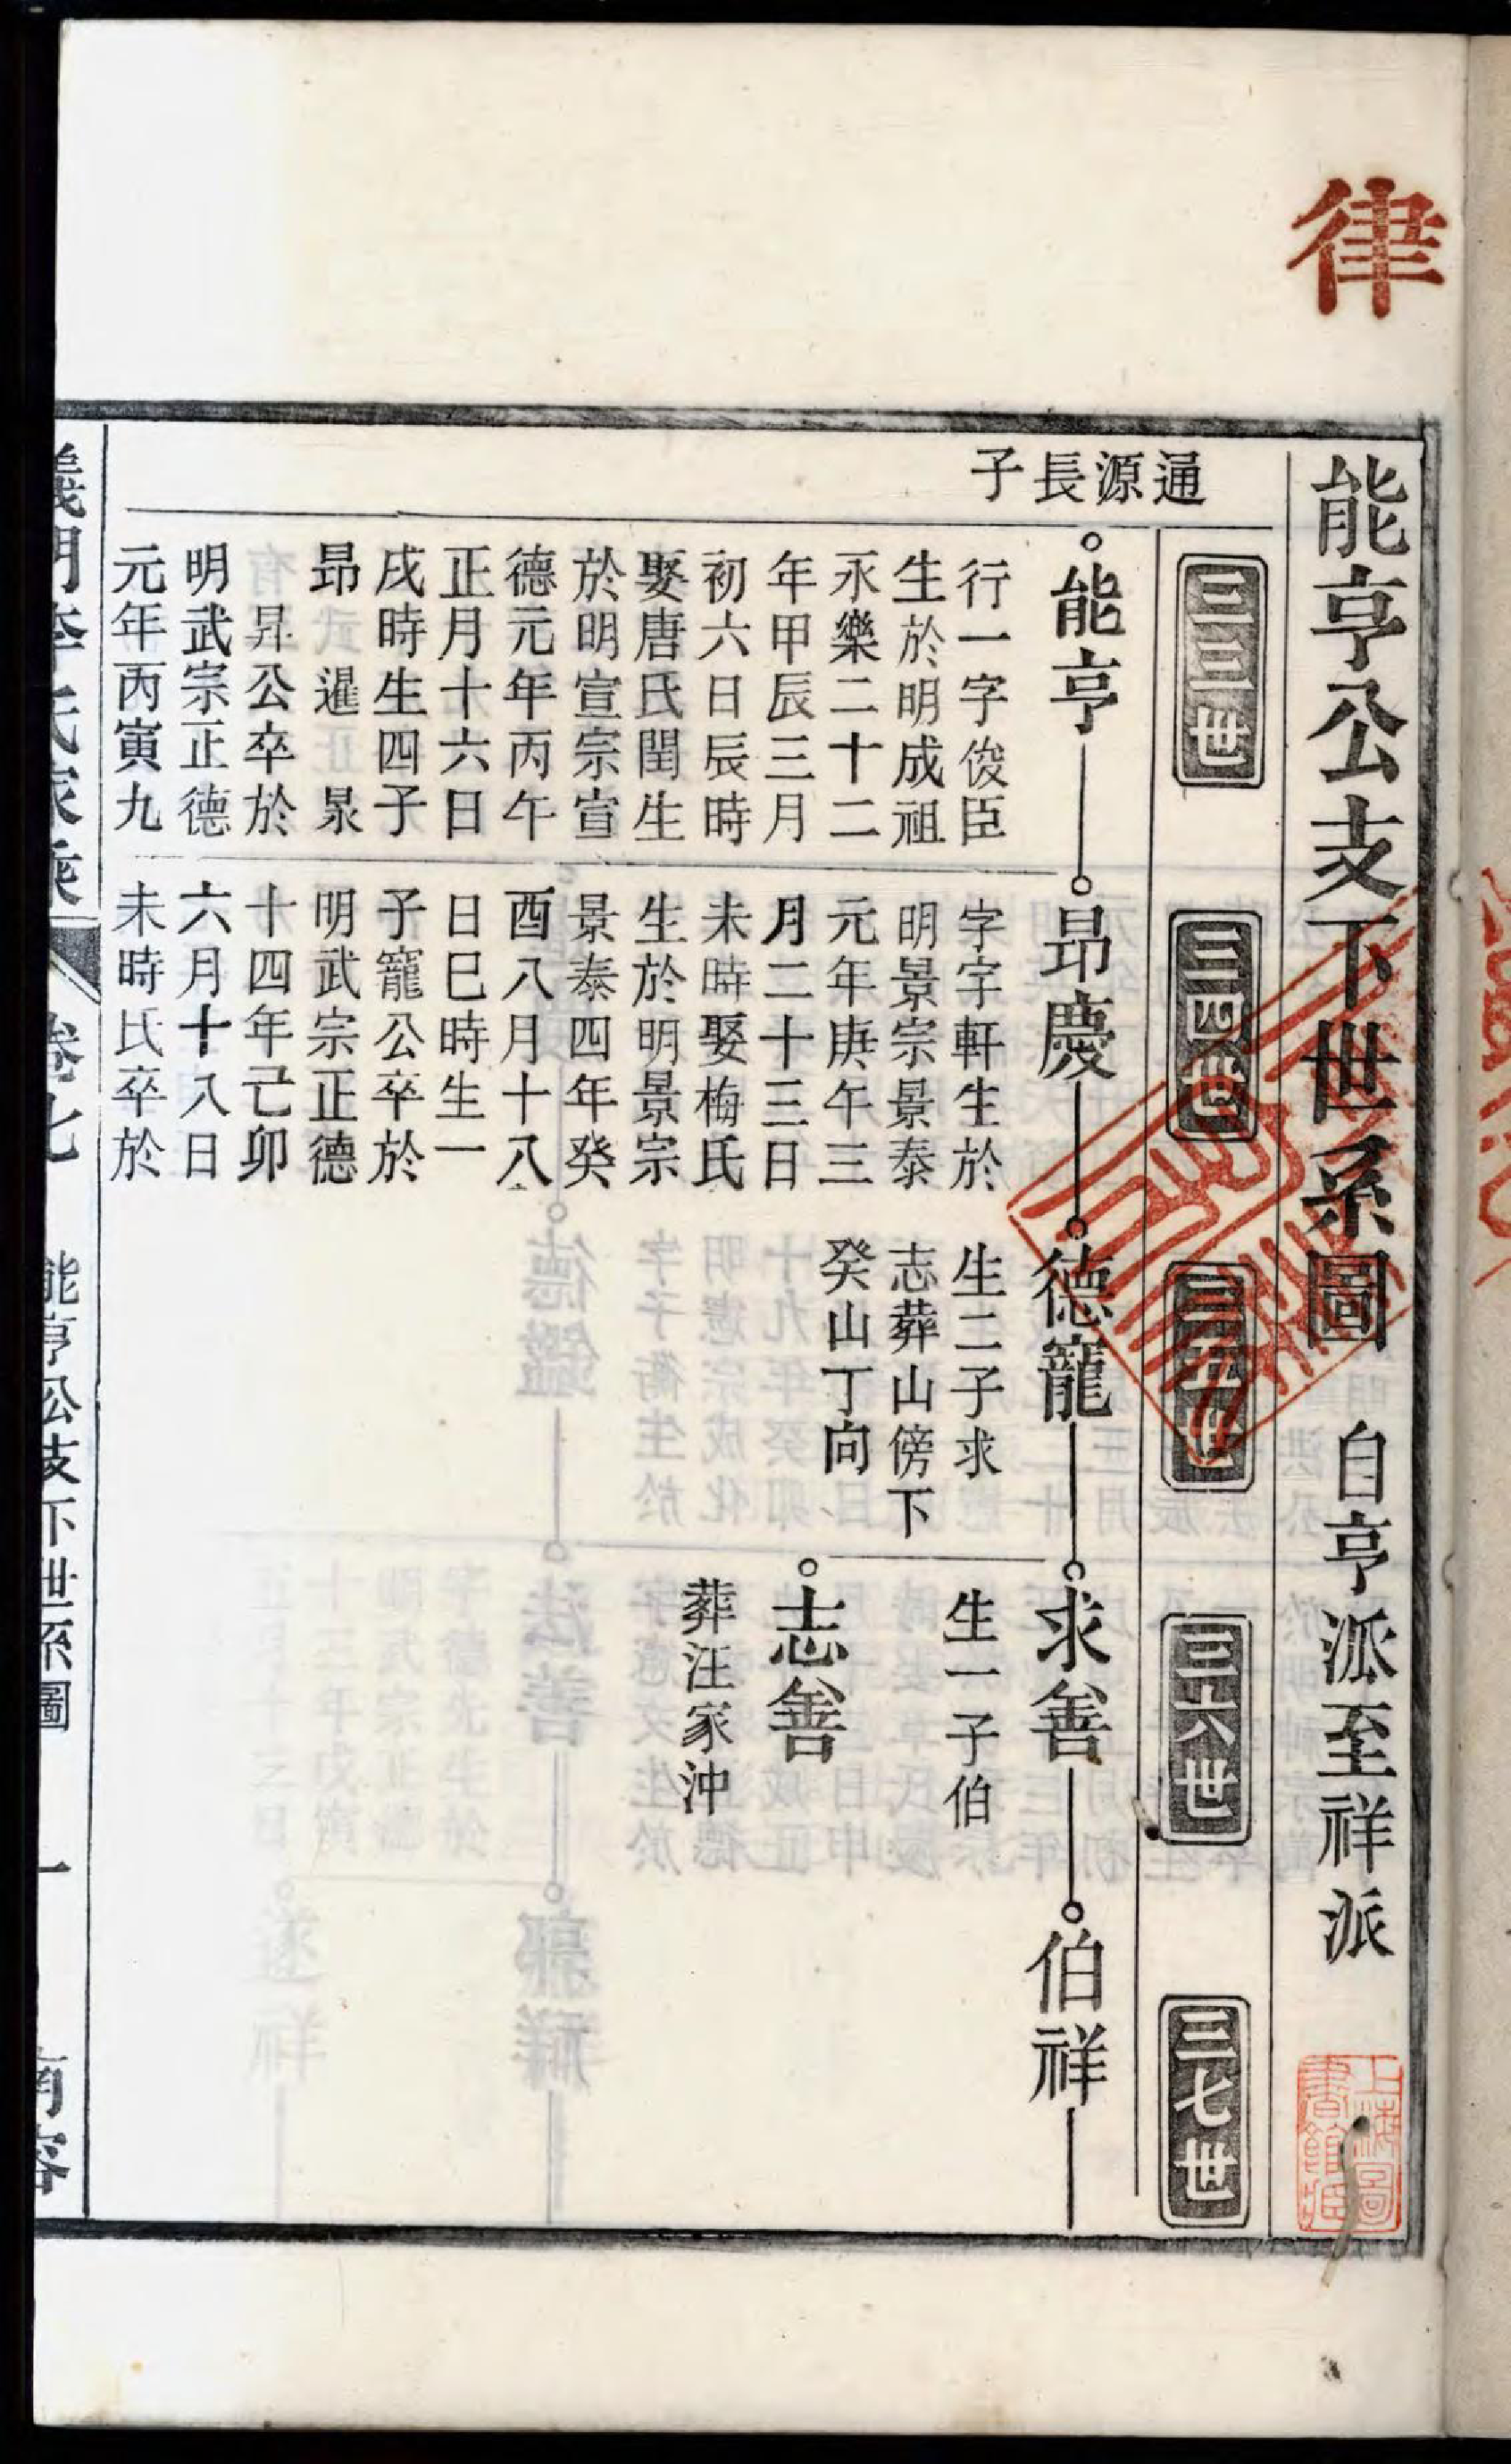 律
能亨公支下世系圖 自亨派至祥派
上海圖
書館藏
三三世
三四世
三五世
三六世
三七世
通源長子
能亨
行一字俊臣
生於明成祖
永樂二十二
年甲辰三月
初六日辰時
娶唐氏閏生
於明宣宗宣
德元年丙午
正月十六日
戌時生四子
昂 暹 泉
昇公卒於
明武宗正德
元年丙寅九
昂慶
字字軒生於
明景宗景泰
元年庚午三
月二十三日
未時娶梅氏
生於明景宗
景泰四年癸
酉八月十八
日巳時生一
子寵公卒於
明武宗正德
十四年己卯
六月十八日
未時氏卒於
德寵
生二子求
志葬山傍下
癸山丁向
求善
生一子伯
志善
葬汪家沖
伯祥
義門李氏家乘 卷七 能亨公支下世系圖 一